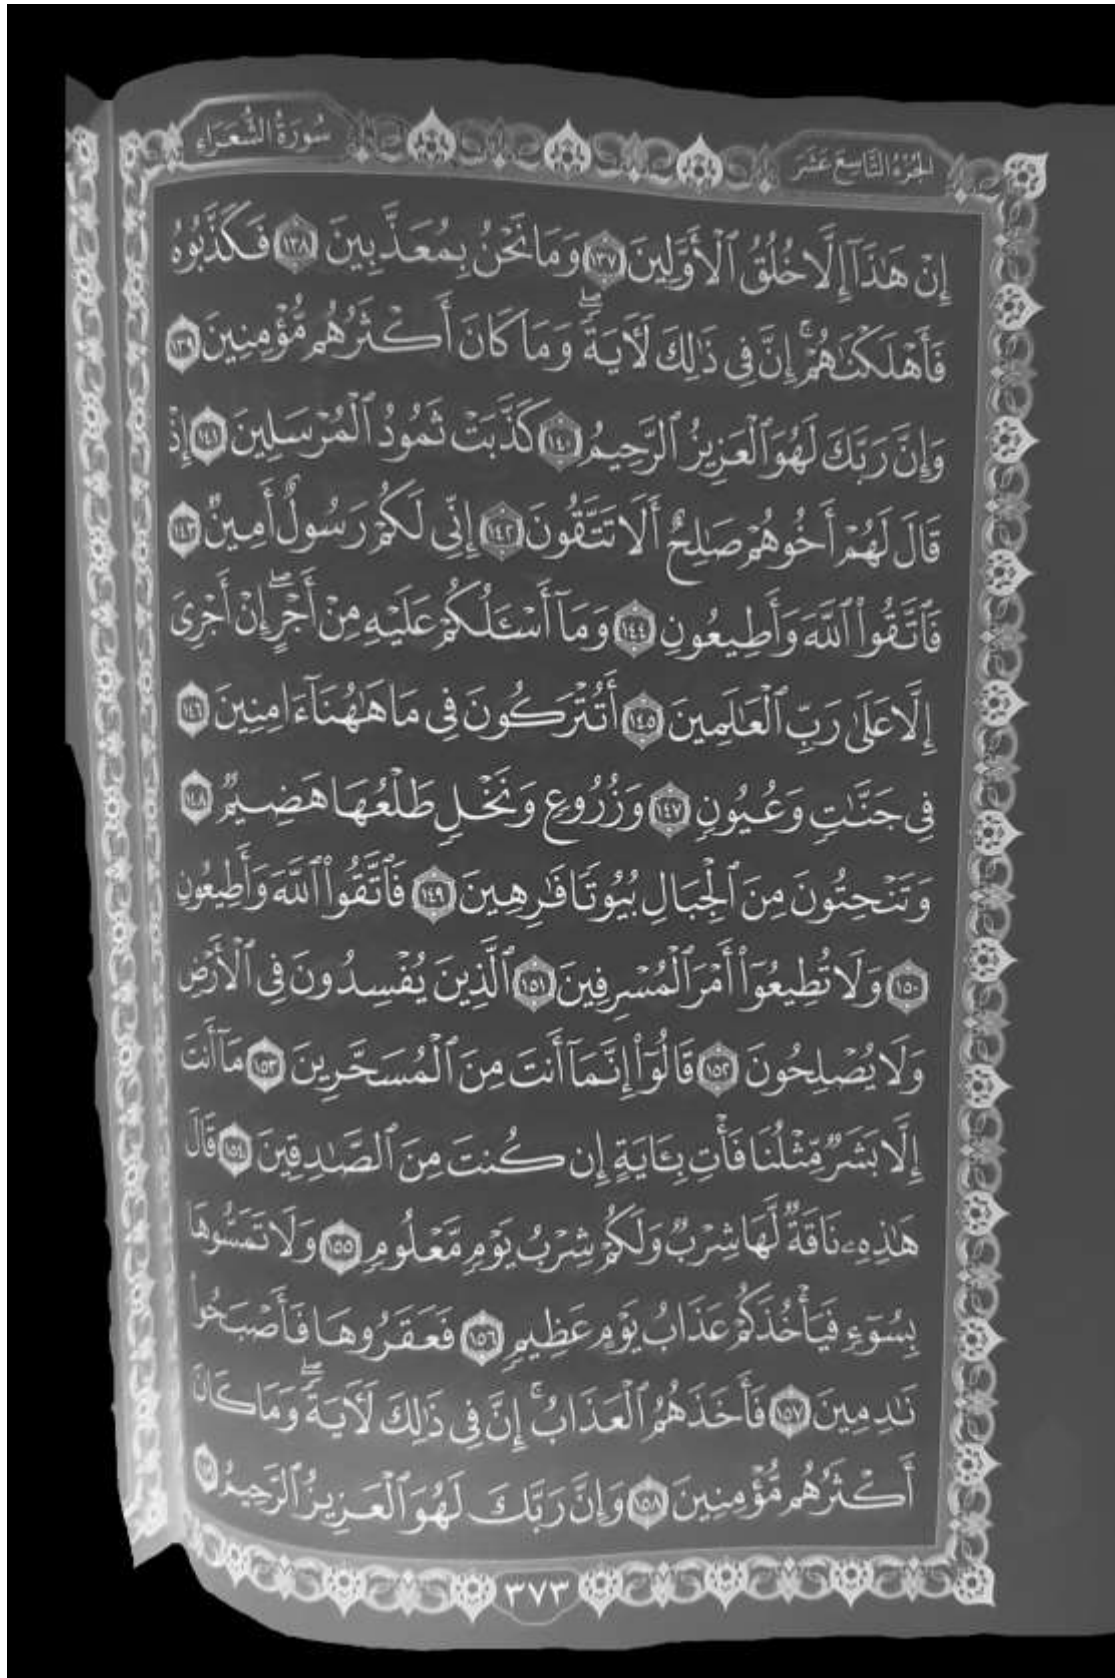 الجزء التاسع عشر
سورة الشعراء
إِنْ هَٰذَآ إِلَّا خُلُقُ ٱلْأَوَّلِينَ ١٣٧ وَمَا نَحْنُ بِمُعَذَّبِينَ ١٣٨ فَكَذَّبُوهُ
فَأَهْلَكْنَٰهُمْ ۚ إِنَّ فِى ذَٰلِكَ لَءَايَةً ۖ وَمَا كَانَ أَكْثَرُهُم مُّؤْمِنِينَ ١٣٩
وَإِنَّ رَبَّكَ لَهُوَ ٱلْعَزِيزُ ٱلرَّحِيمُ ١٤٠ كَذَّبَتْ ثَمُودُ ٱلْمُرْسَلِينَ ١٤١ إِذْ
قَالَ لَهُمْ أَخُوهُمْ صَٰلِحٌ أَلَا تَتَّقُونَ ١٤٢ إِنِّى لَكُمْ رَسُولٌ أَمِينٌ ١٤٣
فَٱتَّقُوا۟ ٱللَّهَ وَأَطِيعُونِ ١٤٤ وَمَآ أَسْـَٔلُكُمْ عَلَيْهِ مِنْ أَجْرٍ ۖ إِنْ أَجْرِىَ
إِلَّا عَلَىٰ رَبِّ ٱلْعَٰلَمِينَ ١٤٥ أَتُتْرَكُونَ فِى مَا هَٰهُنَآ ءَامِنِينَ ١٤٦
فِى جَنَّٰتٍ وَعُيُونٍ ١٤٧ وَزُرُوعٍ وَنَخْلٍ طَلْعُهَا هَضِيمٌ ١٤٨
وَتَنْحِتُونَ مِنَ ٱلْجِبَالِ بُيُوتًا فَٰرِهِينَ ١٤٩ فَٱتَّقُوا۟ ٱللَّهَ وَأَطِيعُونِ
١٥٠ وَلَا تُطِيعُوٓا۟ أَمْرَ ٱلْمُسْرِفِينَ ١٥١ ٱلَّذِينَ يُفْسِدُونَ فِى ٱلْأَرْضِ
وَلَا يُصْلِحُونَ ١٥٢ قَالُوٓا۟ إِنَّمَآ أَنتَ مِنَ ٱلْمُسَحَّرِينَ ١٥٣ مَآ أَنتَ
إِلَّا بَشَرٌ مِّثْلُنَا فَأْتِ بِـَٔايَةٍ إِن كُنتَ مِنَ ٱلصَّٰدِقِينَ ١٥٤ قَالَ
هَٰذِهِۦ نَاقَةٌ لَّهَا شِرْبٌ وَلَكُمْ شِرْبُ يَوْمٍ مَّعْلُومٍ ١٥٥ وَلَا تَمَسُّوهَا
بِسُوٓءٍ فَيَأْخُذَكُمْ عَذَابُ يَوْمٍ عَظِيمٍ ١٥٦ فَعَقَرُوهَا فَأَصْبَحُوا۟
نَٰدِمِينَ ١٥٧ فَأَخَذَهُمُ ٱلْعَذَابُ ۗ إِنَّ فِى ذَٰلِكَ لَءَايَةً ۖ وَمَا كَانَ
أَكْثَرُهُم مُّؤْمِنِينَ ١٥٨ وَإِنَّ رَبَّكَ لَهُوَ ٱلْعَزِيزُ ٱلرَّحِيمُ
٣٧٣